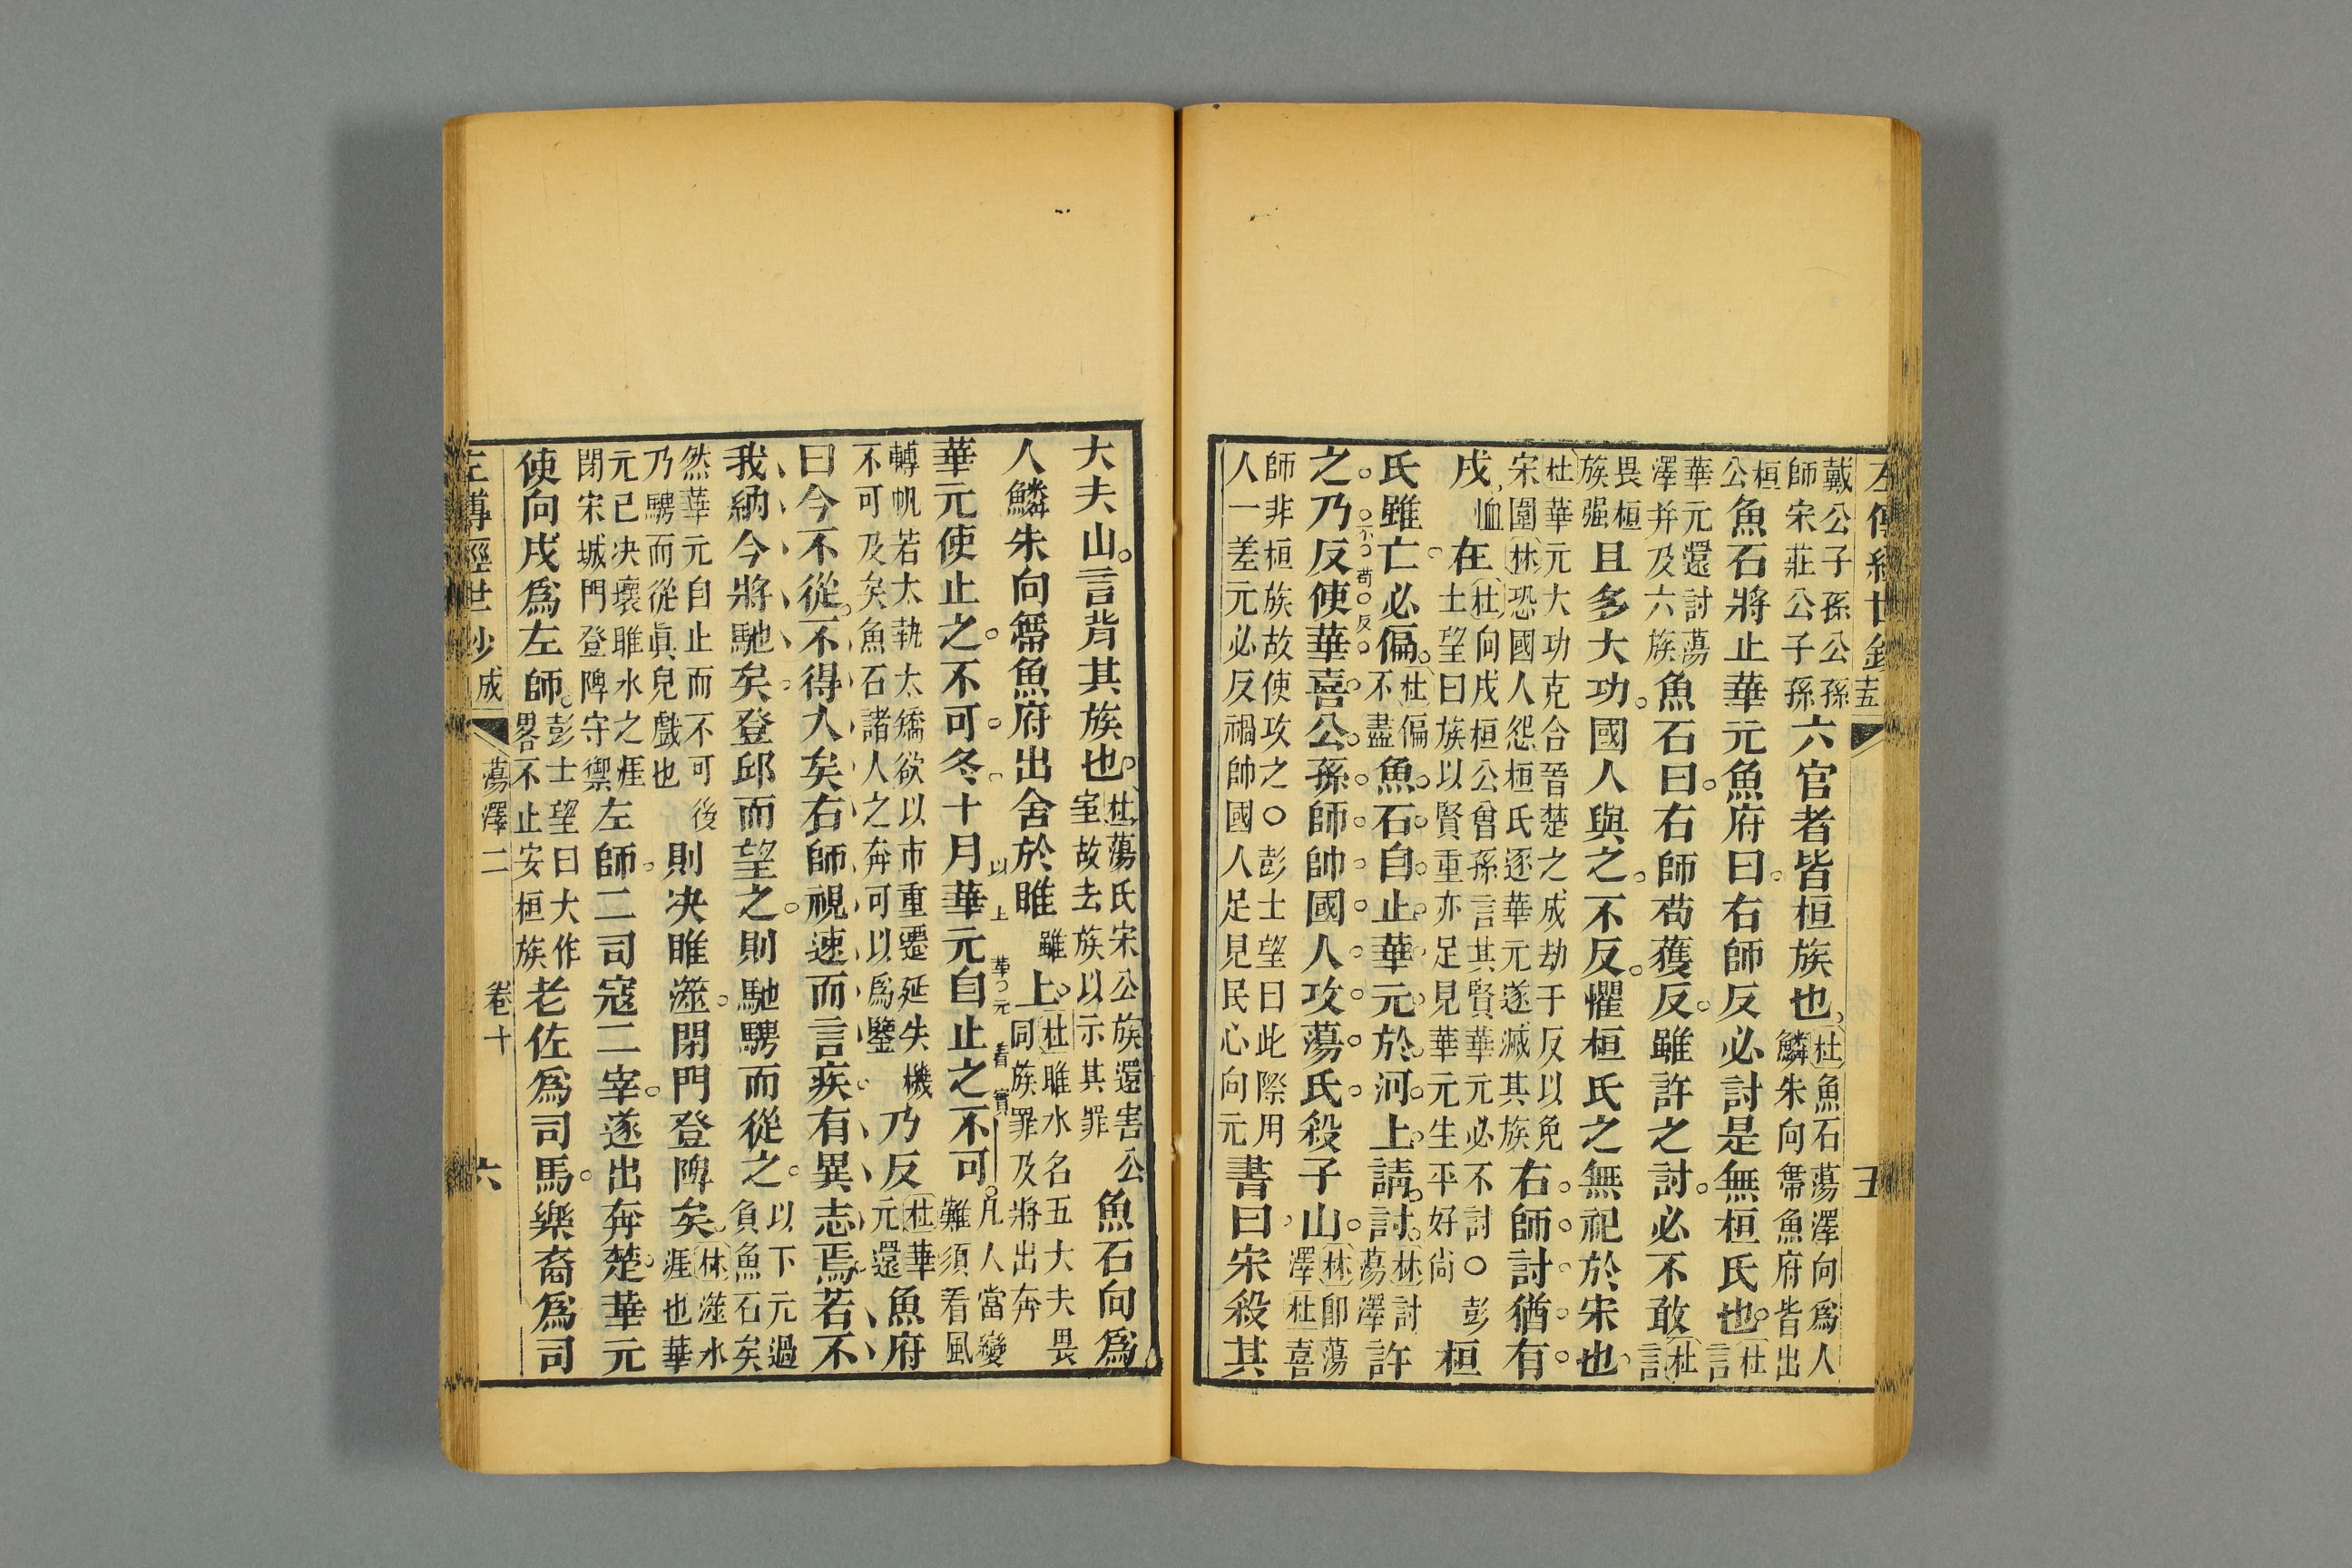 左傳經世鈔 十五 五
戴公子孫公孫師宋莊公子孫六官者皆桓族也杜魚石蕩澤向爲人鱗朱向帶魚府皆出
桓公魚石將止華元魚府曰右師反必討是無桓氏也杜言
華元還討蕩澤并及六族魚石曰右師苟獲反雖許之討必不敢杜言
畏桓族强且多大功國人與之不反懼桓氏之無祀於宋也
杜華元大功克合晉楚之成劫子反以免宋圍林恐國人怨桓氏逐華元遂滅其族右師討猶有
戌恤在杜向戌桓公曾孫言其賢華元必不討○彭士望曰族以賢重亦足見華元生平好尚桓
氏雖亡必偏杜偏不盡魚石自止華元於河上請討林討蕩澤許
不苟反
之乃反使華喜公孫師帥國人攻蕩氏殺子山林卽蕩澤杜喜
師非桓族故使攻之○彭士望曰此際用人一差元必反禍帥國人足見民心向元書曰宋殺其
大夫山言背其族也杜蕩氏宋公族還害公室故去族以示其罪魚石向爲
人鱗朱向帶魚府出舍於睢雖上杜睢水名五大夫畏同族罪及將出奔
以上華元着實
華元使止之不可冬十月華元自止之不可凡人當變難須看風
轉帆若太執太矯欲以市重遷延失機不可及矣魚石諸人之奔可以爲鑒乃反杜華元還魚府
曰今不從不得入矣右師視速而言疾有異志焉若不
我納今將馳矣登邱而望之則馳騁而從之以下元過負魚石矣
然華元自止而不可後乃騁而從眞兒戲也則决睢澨閉門登陴矣林澨水涯也華
元已决壞睢水之涯閉宋城門登陴守禦左師二司寇二宰遂出奔楚華元
使向戌爲左師彭士望曰大作畧不止安桓族老佐爲司馬樂裔爲司
左傳經世鈔 成 蕩澤二 卷十 六